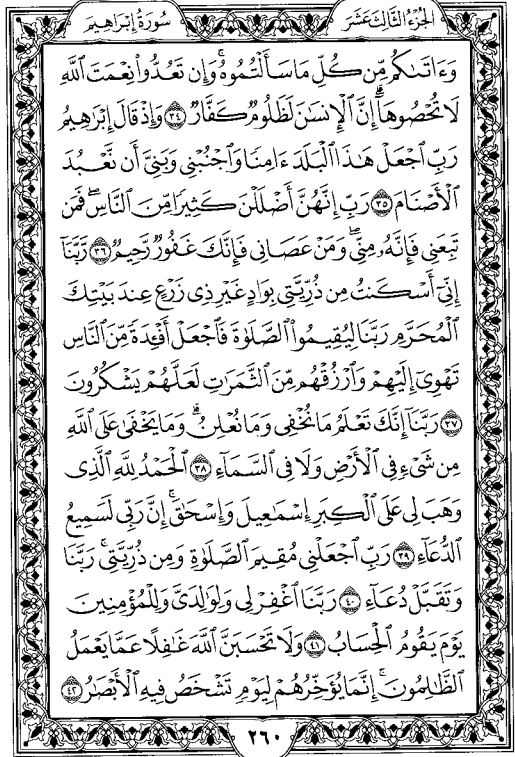 الجزء الثالث عشر
سورة إبراهيم
وَءَاتَىٰكُم مِّن كُلِّ مَا سَأَلْتُمُوهُ ۚ وَإِن تَعُدُّوا۟ نِعْمَتَ ٱللَّهِ
لَا تُحْصُوهَآ ۗ إِنَّ ٱلْإِنسَـٰنَ لَظَلُومٌ كَفَّارٌ ٣٤ وَإِذْ قَالَ إِبْرَٰهِيمُ
رَبِّ ٱجْعَلْ هَـٰذَا ٱلْبَلَدَ ءَامِنًا وَٱجْنُبْنِى وَبَنِىَّ أَن نَّعْبُدَ
ٱلْأَصْنَامَ ٣٥ رَبِّ إِنَّهُنَّ أَضْلَلْنَ كَثِيرًا مِّنَ ٱلنَّاسِ ۖ فَمَن
تَبِعَنِى فَإِنَّهُۥ مِنِّى ۖ وَمَنْ عَصَانِى فَإِنَّكَ غَفُورٌ رَّحِيمٌ ٣٦ رَّبَّنَآ
إِنِّىٓ أَسْكَنتُ مِن ذُرِّيَّتِى بِوَادٍ غَيْرِ ذِى زَرْعٍ عِندَ بَيْتِكَ
ٱلْمُحَرَّمِ رَبَّنَا لِيُقِيمُوا۟ ٱلصَّلَوٰةَ فَٱجْعَلْ أَفْـِٔدَةً مِّنَ ٱلنَّاسِ
تَهْوِىٓ إِلَيْهِمْ وَٱرْزُقْهُم مِّنَ ٱلثَّمَرَٰتِ لَعَلَّهُمْ يَشْكُرُونَ
٣٧ رَبَّنَآ إِنَّكَ تَعْلَمُ مَا نُخْفِى وَمَا نُعْلِنُ ۗ وَمَا يَخْفَىٰ عَلَى ٱللَّهِ
مِن شَىْءٍ فِى ٱلْأَرْضِ وَلَا فِى ٱلسَّمَآءِ ٣٨ ٱلْحَمْدُ لِلَّهِ ٱلَّذِى
وَهَبَ لِى عَلَى ٱلْكِبَرِ إِسْمَـٰعِيلَ وَإِسْحَـٰقَ ۚ إِنَّ رَبِّى لَسَمِيعُ
ٱلدُّعَآءِ ٣٩ رَبِّ ٱجْعَلْنِى مُقِيمَ ٱلصَّلَوٰةِ وَمِن ذُرِّيَّتِى ۚ رَبَّنَا
وَتَقَبَّلْ دُعَآءِ ٤٠ رَبَّنَا ٱغْفِرْ لِى وَلِوَٰلِدَىَّ وَلِلْمُؤْمِنِينَ
يَوْمَ يَقُومُ ٱلْحِسَابُ ٤١ وَلَا تَحْسَبَنَّ ٱللَّهَ غَـٰفِلًا عَمَّا يَعْمَلُ
ٱلظَّـٰلِمُونَ ۚ إِنَّمَا يُؤَخِّرُهُمْ لِيَوْمٍ تَشْخَصُ فِيهِ ٱلْأَبْصَـٰرُ ٤٢
٢٦٠